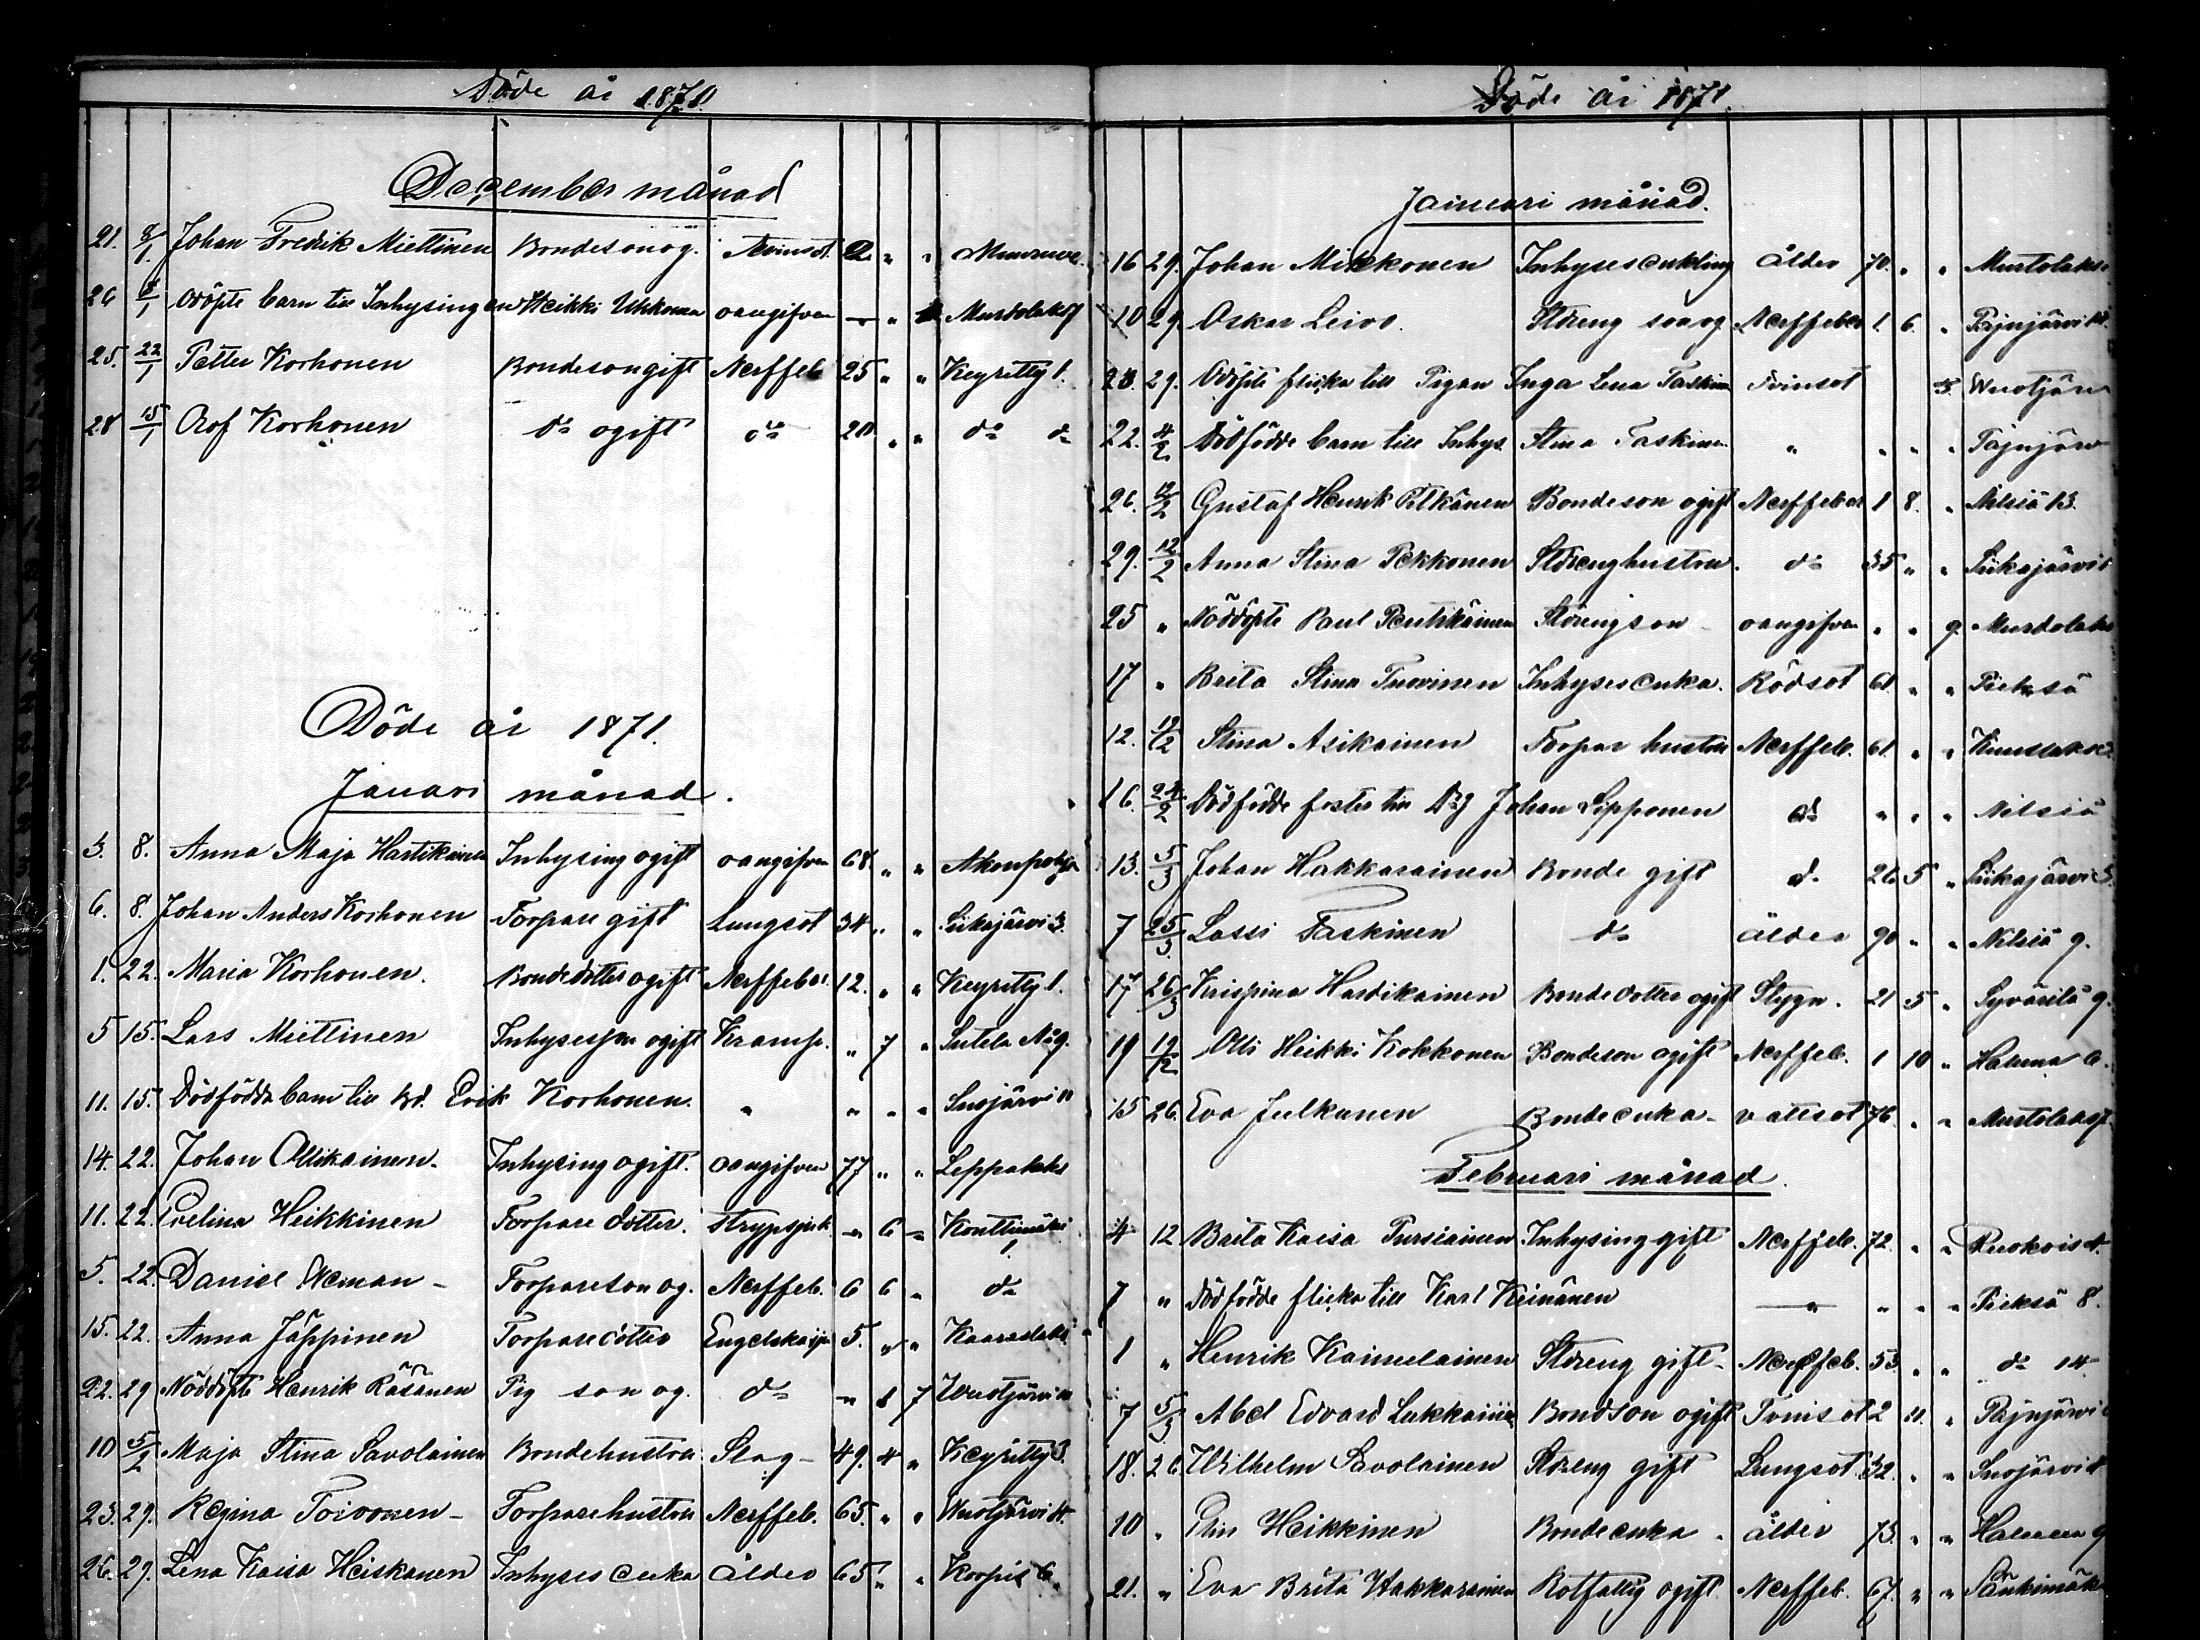 Döde år 1871.
December månad
21. 8/1 Johan Fredrik Miettinen Bondeson og. Tvinsot 2 " "
26 8/1 Odöpte barn till Inhysingen Heikki Uhkonen oangifven — " Murdolaks 7
25. 22/1 Petter Korhonen Bondeson gift Nerffeb 25 " " Keyritty 1.
28 15/1 Olof Korhonen do ogift do 20 " " do do
Döde år 1871.
Januari månad.
3. 8. Anna Maja Hartikainen Inhysing ogift oangifven 68. " " Akonpohja
6. 8. Johan Anders Korhonen Torpare gift Lungsot 34 " " Siikajärvi 3.
1. 22. Maria Korhonen. Bondedotter ogift Nerffeber. 12. " " Keyritty 1.
5 15. Lars Miettinen Inhyseson ogift Kramp. " 7 " Sutela No 9.
11. 15. Dödfödde barn till Bd. Erik Korhonen. " " " " Suojärvi 11
14. 22. Johan Ollikainen. Inhysing ogift. oangifven 77 " " Leppälaks
11. 22. Evelina Heikkinen Torpare dotter. Strypsjuk. " 6 " Konttimäki 1
5. 22. Daniel Neman – Torpareson og. Nerffeb. 6 6 " do
15. 22. Anna Jäppinen Torparedotter Engelska sju 5. " " Kaaraslaks
22. 29 Nöddöpte Henrik Räsänen Pig son og. do " 1 7 Wuotjärvi 11
10 5/2 Maja Stina Savolainen Bondehustru Slag – 49. 4 " Keyritty 3.
23. 29. Regina Toivonen – Torparehustru Nerffeb. 65. " " Wuotjärvi 4.
26. 29. Lena Kaisa Heiskanen Inhyses enka Ålder 65 " " Korpis 6.
Döde år 1871.
Januari månad.
16 29. Johan Mikkonen Inhysesenkling ålder 70. " " Murtolaks
10 29 Oskar Leivo. Streng son og Nerffeber 1 6. " Pajujärvi
23. 29. Odöpte flicka till Pigan Inga Lena Taskinen Tvinsot 3. Wuotjärv
22. 4/2 Dödfödde barn till Inhys. Stina Taskinen " " " " Pajujärv
26. 12/2 Gustaf Henrik Pitkänen Bondeson ogift Nerffeber 1 8. " Nilsiä 13.
29. 12/2 Anna Stina Pekkonen Strenghustru. do 35 " " Siikajärvi
25 " Nöddöpte Paul Pentikäinen Strengson – oangifven " " 9 Murdolaks
17 " Brita Stina Tuovinen Inhysesenka. Rödsot 61. " " Pieksä
12. 19/2 Stina Asikainen Torpar hustru Nerffeb. 61. " "
16. 24/2 Dödfödde foster till Drg Johan Lipponen do " " " Nilsiä
13. 5/3 Johan Hakkarainen Bonde gift d. 26 5 " Siikajärvi 3.
7 25/3 Lassi Taskinen do ålder 90 " " Nilsiä 9.
17 26/3 Krispina Hardikainen Bondedotter ogift Stygn. 21 5 " Syvärilä 9.
19 19/2 Olli Heikki Kokkonen Bondeson ogift Nerffeb. 1 10 " Haluna 6.
15 26. Eva Julkunen Bondeenka – vattsot 76. " " Murtolaks 7.
Februari månad.
4 12 Brita Kaisa Pursiainen Inhysing gift Nerffeb. 72. " " Ruokois 4.
7 " Dödfödde flicka till Karl Keinänen — " " " Pieksä 8.
1 " Henrik Kainulainen Streng gift – Nerffeb. 53. " " do 14
7 5/3 Abel Edvard Lukkainen Bondson ogift Tvinsot 2 11. " Pajujärvi
18. 26. Wilhelm Savolainen Streng gift Lungsot 32. " " Suojärvi
10 " Heikkinen Bondeenka – ålder 73. " " Haluna 9
21. " Eva Brita Hakkarainen Rotfattig ogift Nerffeb. 67. " " Pänkimäk